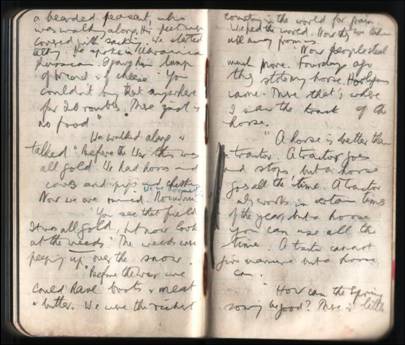 a bearded peasant, who
was walking along. His feet were
covered with sacking. We started
talking. He spoke in Ukrainian
Russian. I gave him a lump
of bread & cheese. "You
couldn't buy that anywhere
for 20 roubles. There just is
no food."
We walked along &
talked "Before the War this was
all gold. We had horses and
cows and pigs
Now we are ruined.
"You see that field
It was all gold, but now look
at the weeds." The weeds were
peeping up over the snow.
"Before the war we
could have boots & meat
& butter. We were the richest
country in the world for grain.
We fed the world. Now they have taken
all away from us.
"Now people steal
much more. Four days ago
they stole my horse. Hooligans
came. There that's where
I saw the track of the
horse."
"A horse is better than
a tractor. A tractor goes
and stops, but a horse
goes all the time. A tractor
only works in certain times
of the year, but a horse
you can use all the
time. A tractor cannot
give manure but a horse
can.
"How can the Spring
sowing be good? There is little